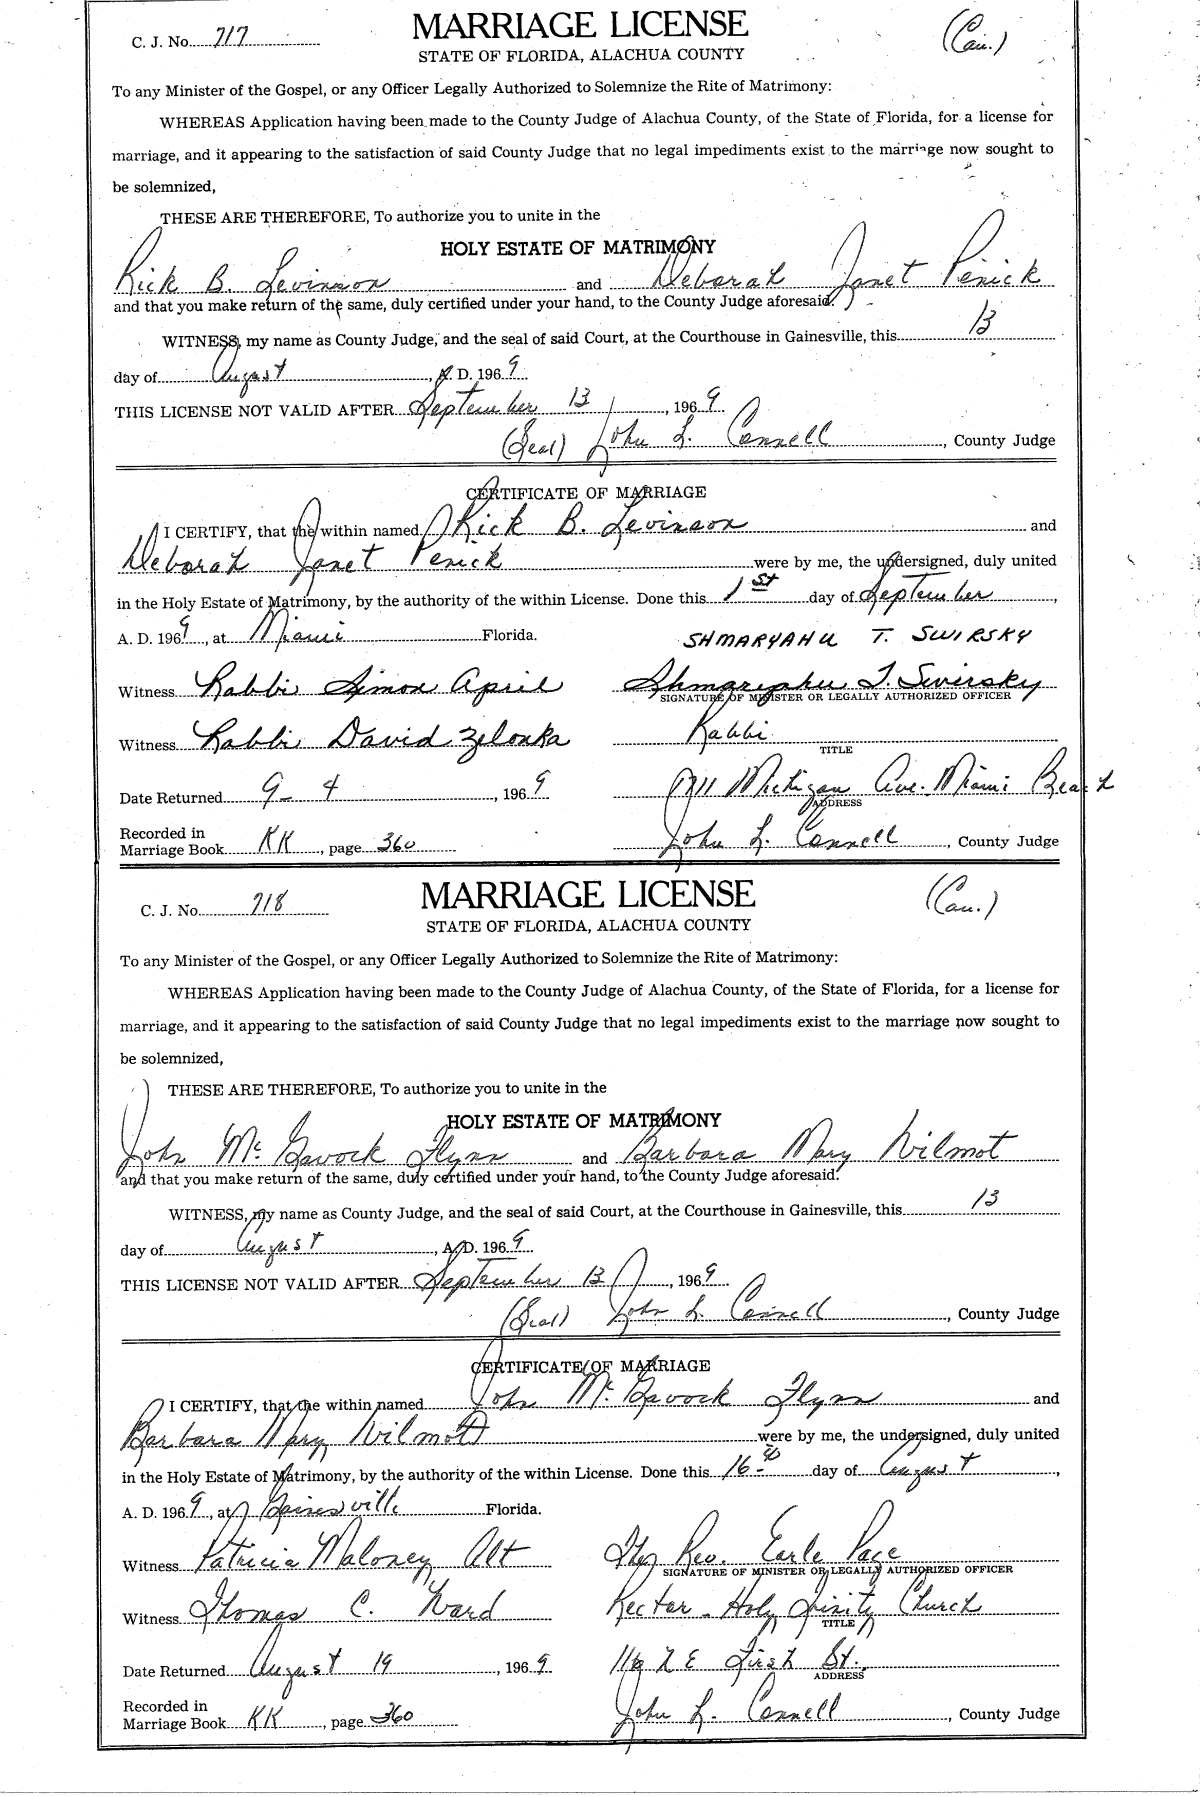 C. J. No. 717
MARRIAGE LICENSE
(Cau.)
STATE OF FLORIDA, ALACHUA COUNTY
To any Minister of the Gospel, or any Officer Legally Authorized to Solemnize the Rite of Matrimony:
WHEREAS Application having been made to the County Judge of Alachua County, of the State of Florida, for a license for
marriage, and it appearing to the satisfaction of said County Judge that no legal impediments exist to the marriage now sought to
be solemnized,
THESE ARE THEREFORE, To authorize you to unite in the
HOLY ESTATE OF MATRIMONY
Rick B. Levinson and Deborah Janet Penick
and that you make return of the same, duly certified under your hand, to the County Judge aforesaid.
WITNESS, my name as County Judge, and the seal of said Court, at the Courthouse in Gainesville, this 13
day of August, A. D. 1969.
THIS LICENSE NOT VALID AFTER September 13, 1969.
(Seal) John L. Connell, County Judge
CERTIFICATE OF MARRIAGE
I CERTIFY, that the within named Rick B. Levinson and
Deborah Janet Penick were by me, the undersigned, duly united
in the Holy Estate of Matrimony, by the authority of the within License. Done this 1st day of September,
A. D. 1969, at Miami Florida.
SHMARYAHU T. SWIRSKY
Witness Rabbi Simon April
Shmaryahu T. Swirsky
SIGNATURE OF MINISTER OR LEGALLY AUTHORIZED OFFICER
Witness Rabbi David Zelonka
Rabbi
TITLE
Date Returned 9-4, 1969
1711 Michigan Ave. Miami Beach
ADDRESS
Recorded in
Marriage Book KK, page 360
John L. Connell, County Judge
C. J. No. 718
MARRIAGE LICENSE
(Cau.)
STATE OF FLORIDA, ALACHUA COUNTY
To any Minister of the Gospel, or any Officer Legally Authorized to Solemnize the Rite of Matrimony:
WHEREAS Application having been made to the County Judge of Alachua County, of the State of Florida, for a license for
marriage, and it appearing to the satisfaction of said County Judge that no legal impediments exist to the marriage now sought to
be solemnized,
THESE ARE THEREFORE, To authorize you to unite in the
HOLY ESTATE OF MATRIMONY
John McGavock Flynn and Barbara Mary Wilmot
and that you make return of the same, duly certified under your hand, to the County Judge aforesaid.
WITNESS, my name as County Judge, and the seal of said Court, at the Courthouse in Gainesville, this 13
day of August, A. D. 1969.
THIS LICENSE NOT VALID AFTER September 13, 1969.
(Seal) John L. Connell, County Judge
CERTIFICATE OF MARRIAGE
I CERTIFY, that the within named John McGavock Flynn and
Barbara Mary Wilmot were by me, the undersigned, duly united
in the Holy Estate of Matrimony, by the authority of the within License. Done this 16 day of August,
A. D. 1969, at Gainesville Florida.
Witness Patricia Maloney Alt
The Rev. Earle Page
SIGNATURE OF MINISTER OR LEGALLY AUTHORIZED OFFICER
Witness Thomas C. Ward
Rector - Holy Trinity Church
TITLE
Date Returned August 19, 1969
116 N E First St.
ADDRESS
Recorded in
Marriage Book KK, page 360
John L. Connell, County Judge